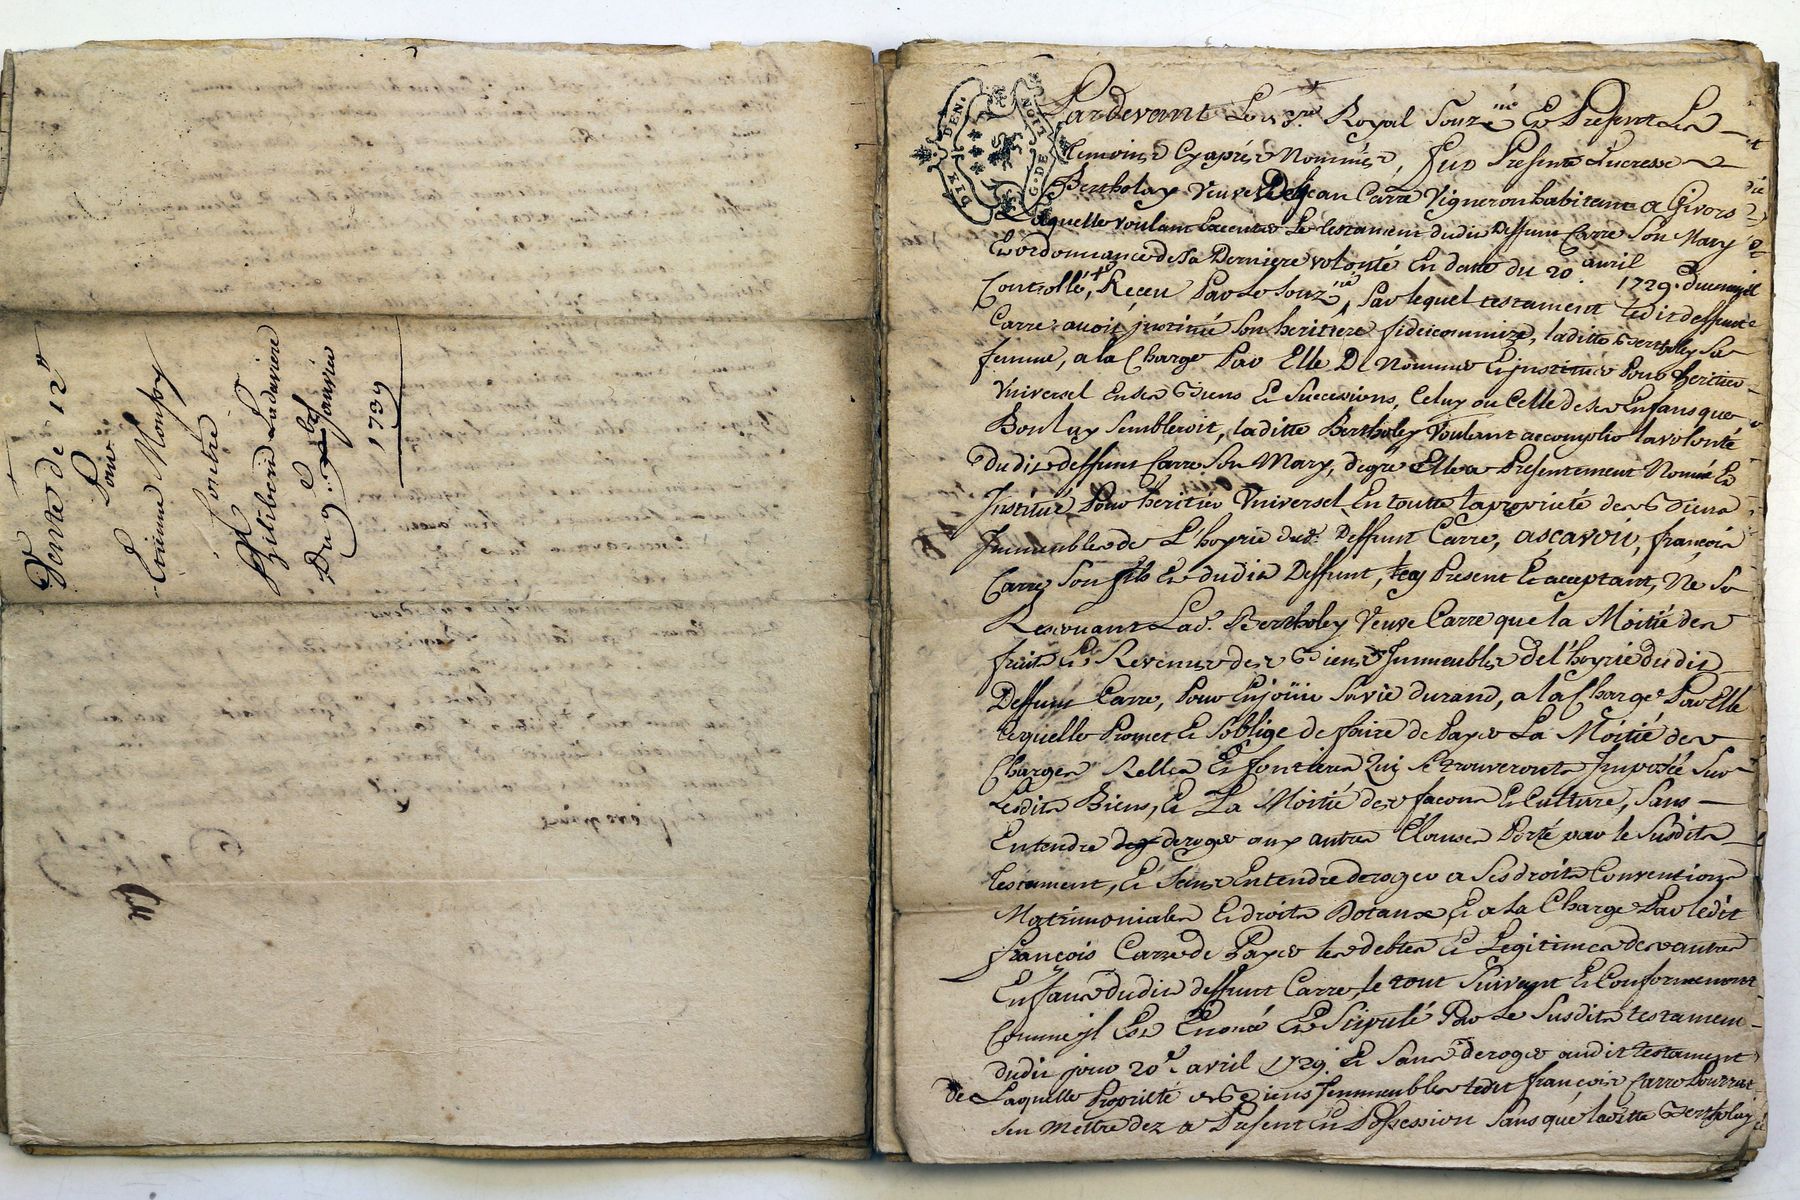 Vente de 12#
Pour
Etienne Monfoy
Contre
Philiberte Laderriere
Du 9e janvier
1739
DIX DEN.
G. DE LION
Pardevant Le nore Royal Souzné Et Present Les
temoins Cyaprés Nommés, fut Presente Lucresse
Bertholay Veuve De Jean Carre Vigneron habitant a Givors
Laquelle voulant Executer Le testament dudit Deffunt Carre Son Mary
Et ordonnance de Sa Derniere volonté En datte du 20 avril 1729.
Controllé, & Receu Par Le Souzné, Par lequel testament ledit deffunt
Carre avoit jnstitué Son heritiere fideicommize, laditte Bertholey Sa
femme, a la Charge Par Elle De Nommer Et jnstituer Pour heritier
Vniversel En Ses Biens Et Successions, Celuy ou Celle de Ses Enfans que
Bon luy Sembleroit, laditte Bertholey Voulant accomplir la volonté
dudit deffunt Carre Son Mary, degre Elle a Presentement Nommé Et
Jnstitué Pour heritier Vniversel En toutte la proprieté des Biens
Jmmeubles de L'hoyrie dud. Deffunt Carre, ascavoir, françois
Carre Son fils Et dudit Deffunt, jcy Present Et acceptant, Ne Se
Reservant Lad. Bertholey Veuve Carre que la Moitié des
fruits Et Revenus des Biens Jmmeubles de l'hoyrie dudit
Deffunt Carre, Pour En joüir Sa vie durand, a la Charge Par Elle
Lequelle Promet Et S'oblige de faire de Payer La Moitié des
Charges Relles Et fontieres Qui Se trouveront Jmposée Sur
Lesdits Biens, Et La Moitié des facons Et Culture, Sans
Entendre deroger aux autres Clauses Porté par le Susdit
testament, Et Sans Entendre deroger a Ses droits Conventions
Matrimoniales Et droits Dotaux, Et a la Charge Par ledit
françois Carre de Payer les debtes Et Legitimes des autres
Enfans dudit deffunt Carre, le tout Suivant Et Conformement
Comme jl Est Enoncé Et Stipulé Par Le Susdit testament
dudit jour 20e avril 1729. Et Sans deroger audit testament
de Laquelle Proprieté des Biens Jmmeubles ledit françois Carre Pourrat
Sen Mettre dez a Present En Possession Sans que laditte Bertholay